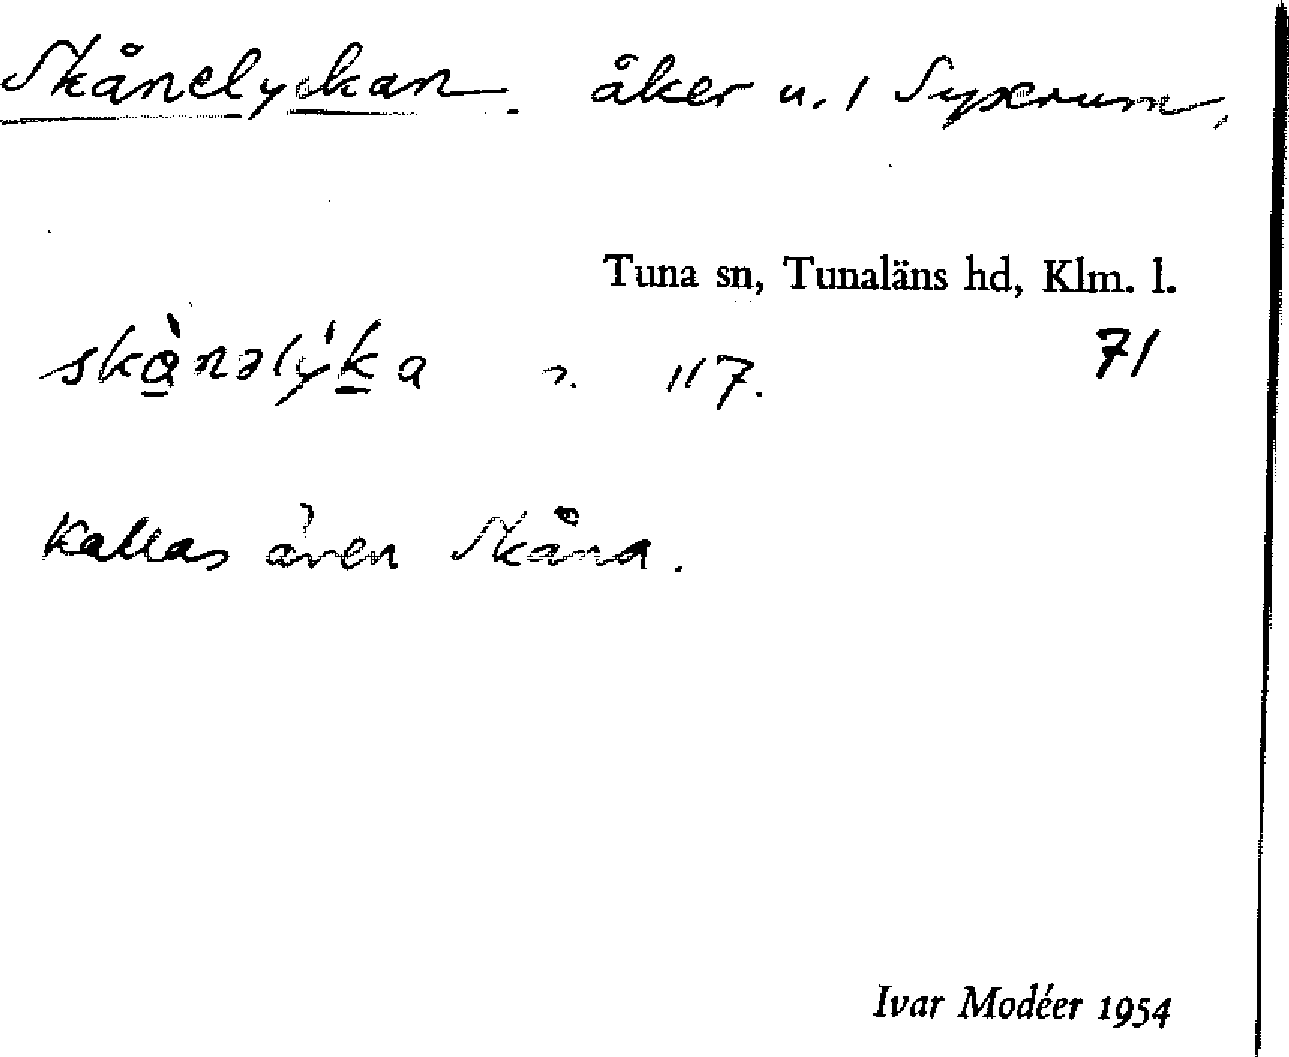 Skånelyckan. åker u. 1 Syserum,
Tuna sn, Tunaläns hd, Klm. l.
skànəlýka 117. 71
Kallas även Skåna.
Ivar Modéer 1954